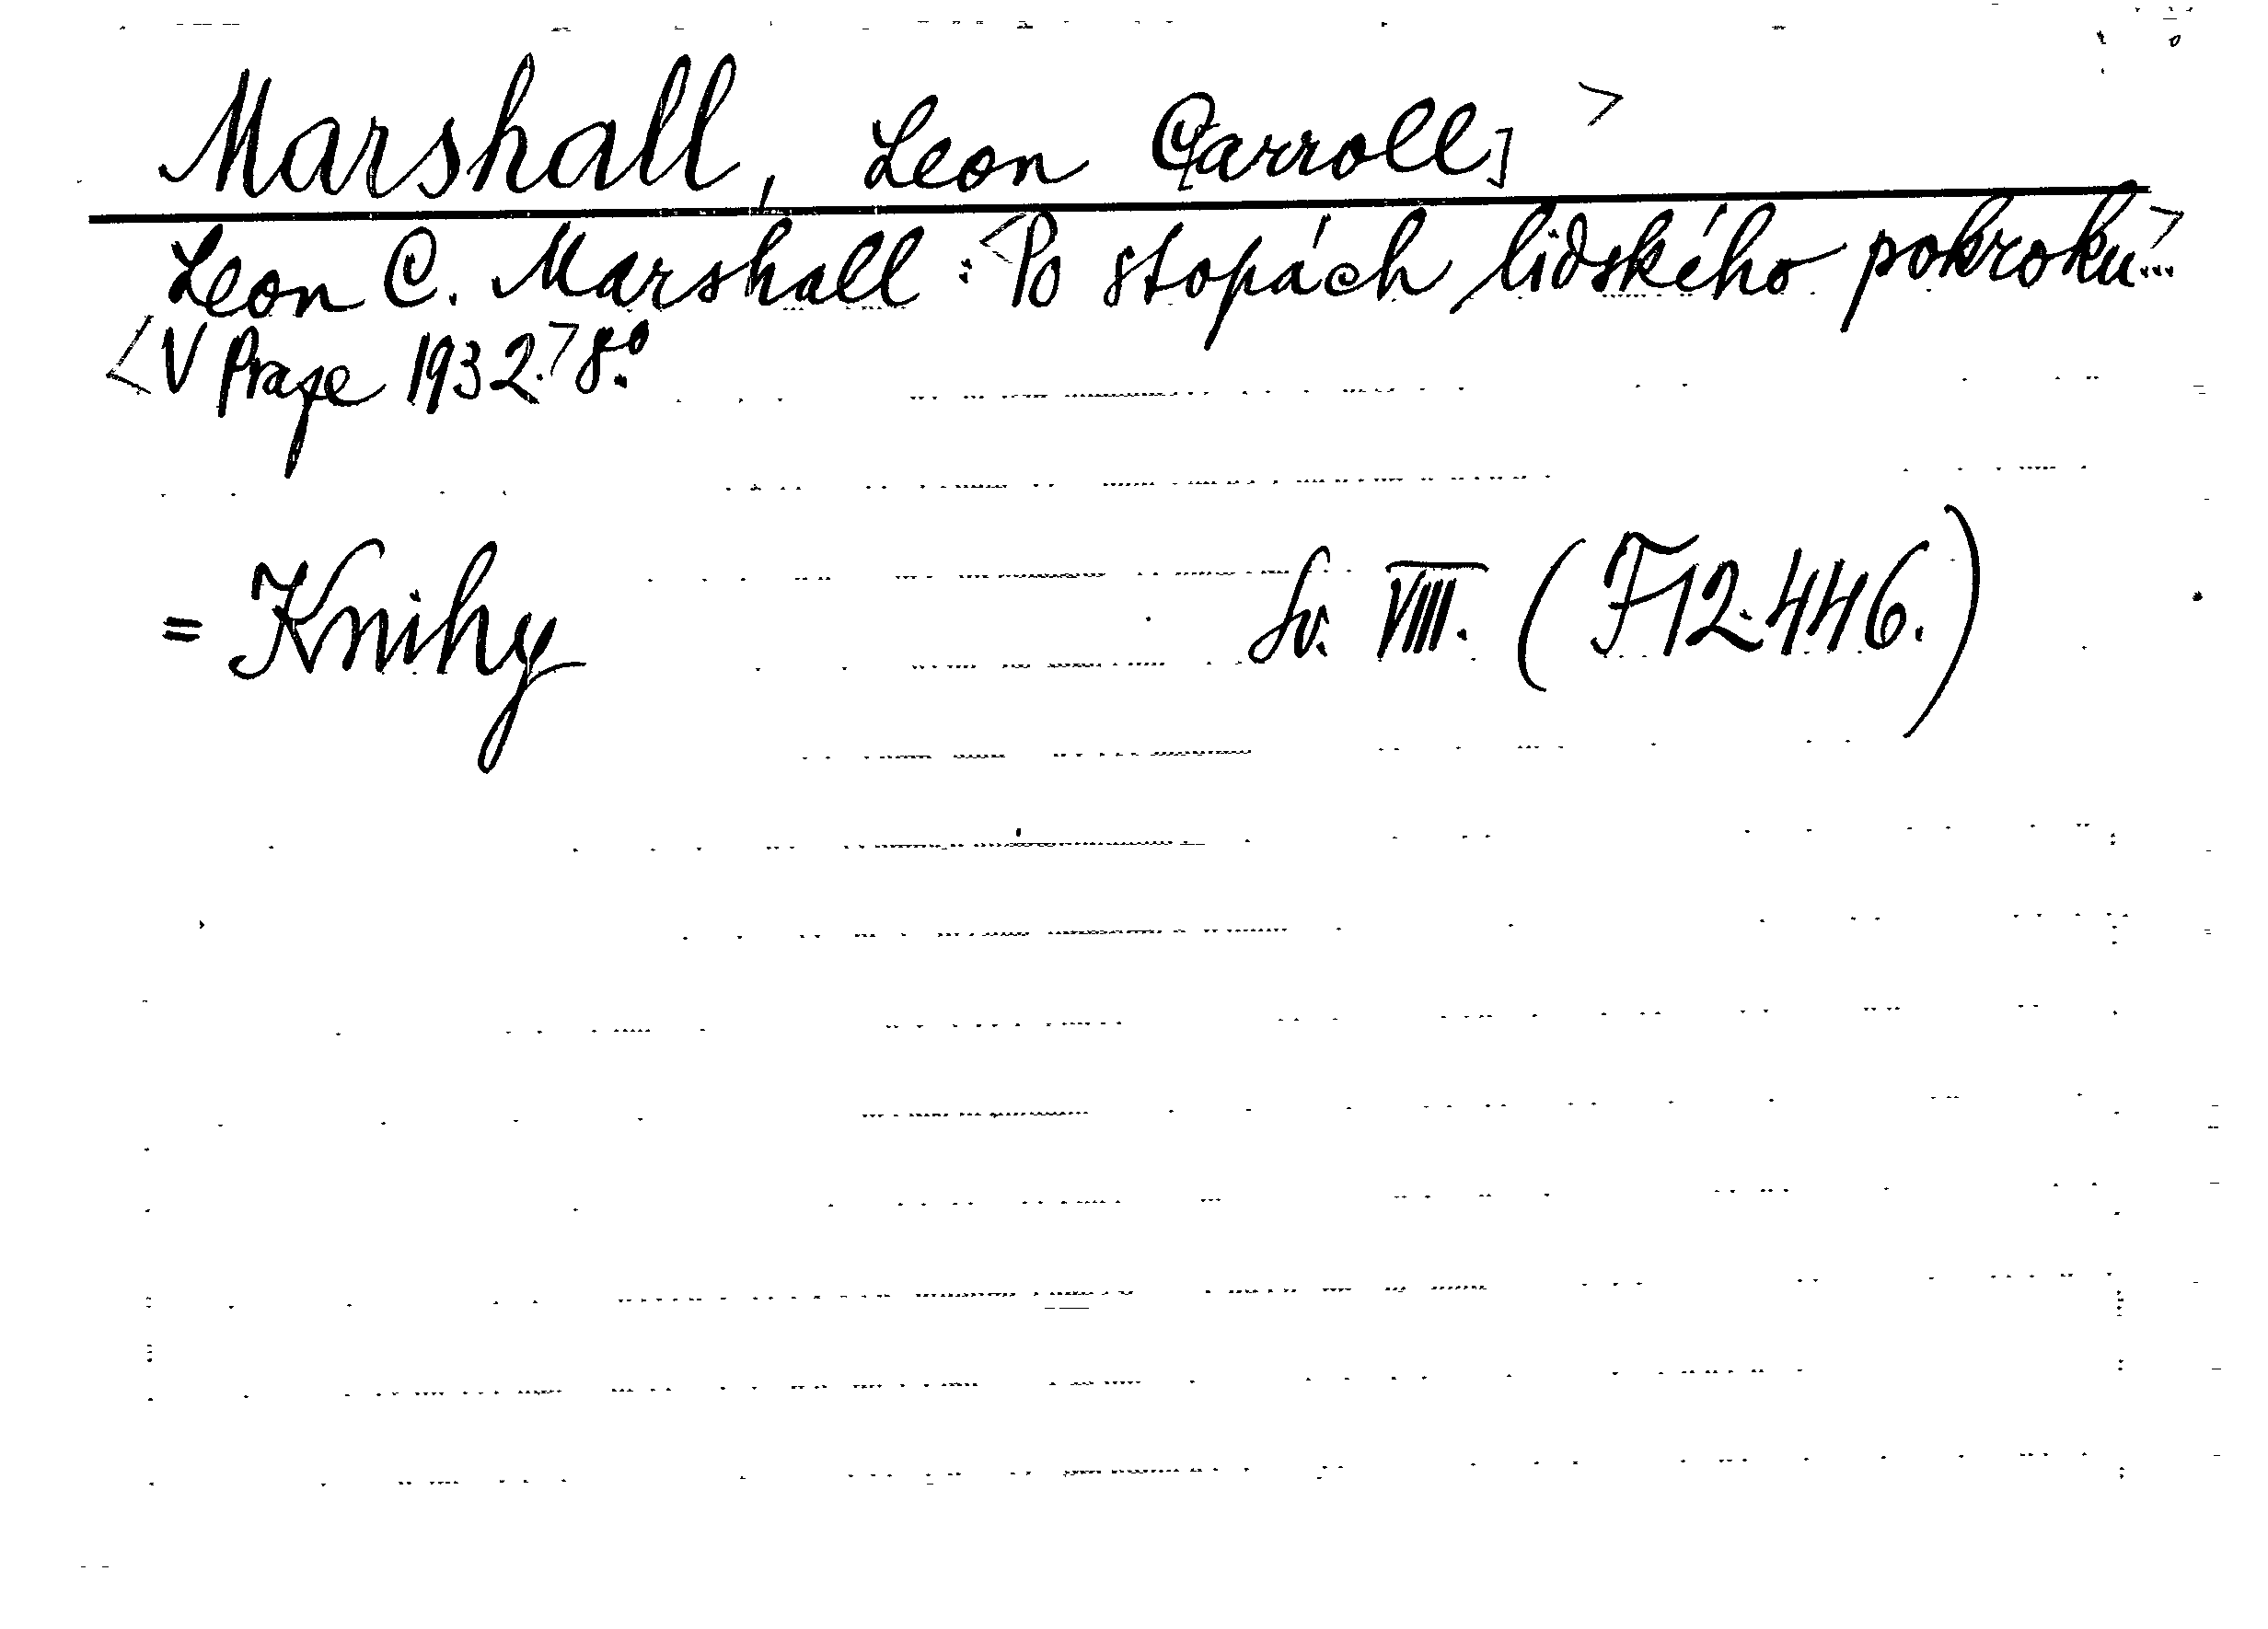 Marshall, Leon C[arroll] >
Leon C. Marshall: <Po stopách lidského pokroku...>
<V Praze 1932.> 8.°
= Knihy Sv. VIII. (F12.446.)